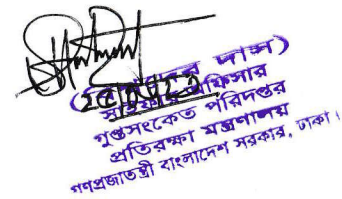 দাস)
সাইফার অফিসার
গুপ্তসংকেত পরিদপ্তর
প্রতিরক্ষা মন্ত্রণালয়
গণপ্রজাতন্ত্রী বাংলাদেশ সরকার, ঢাকা।